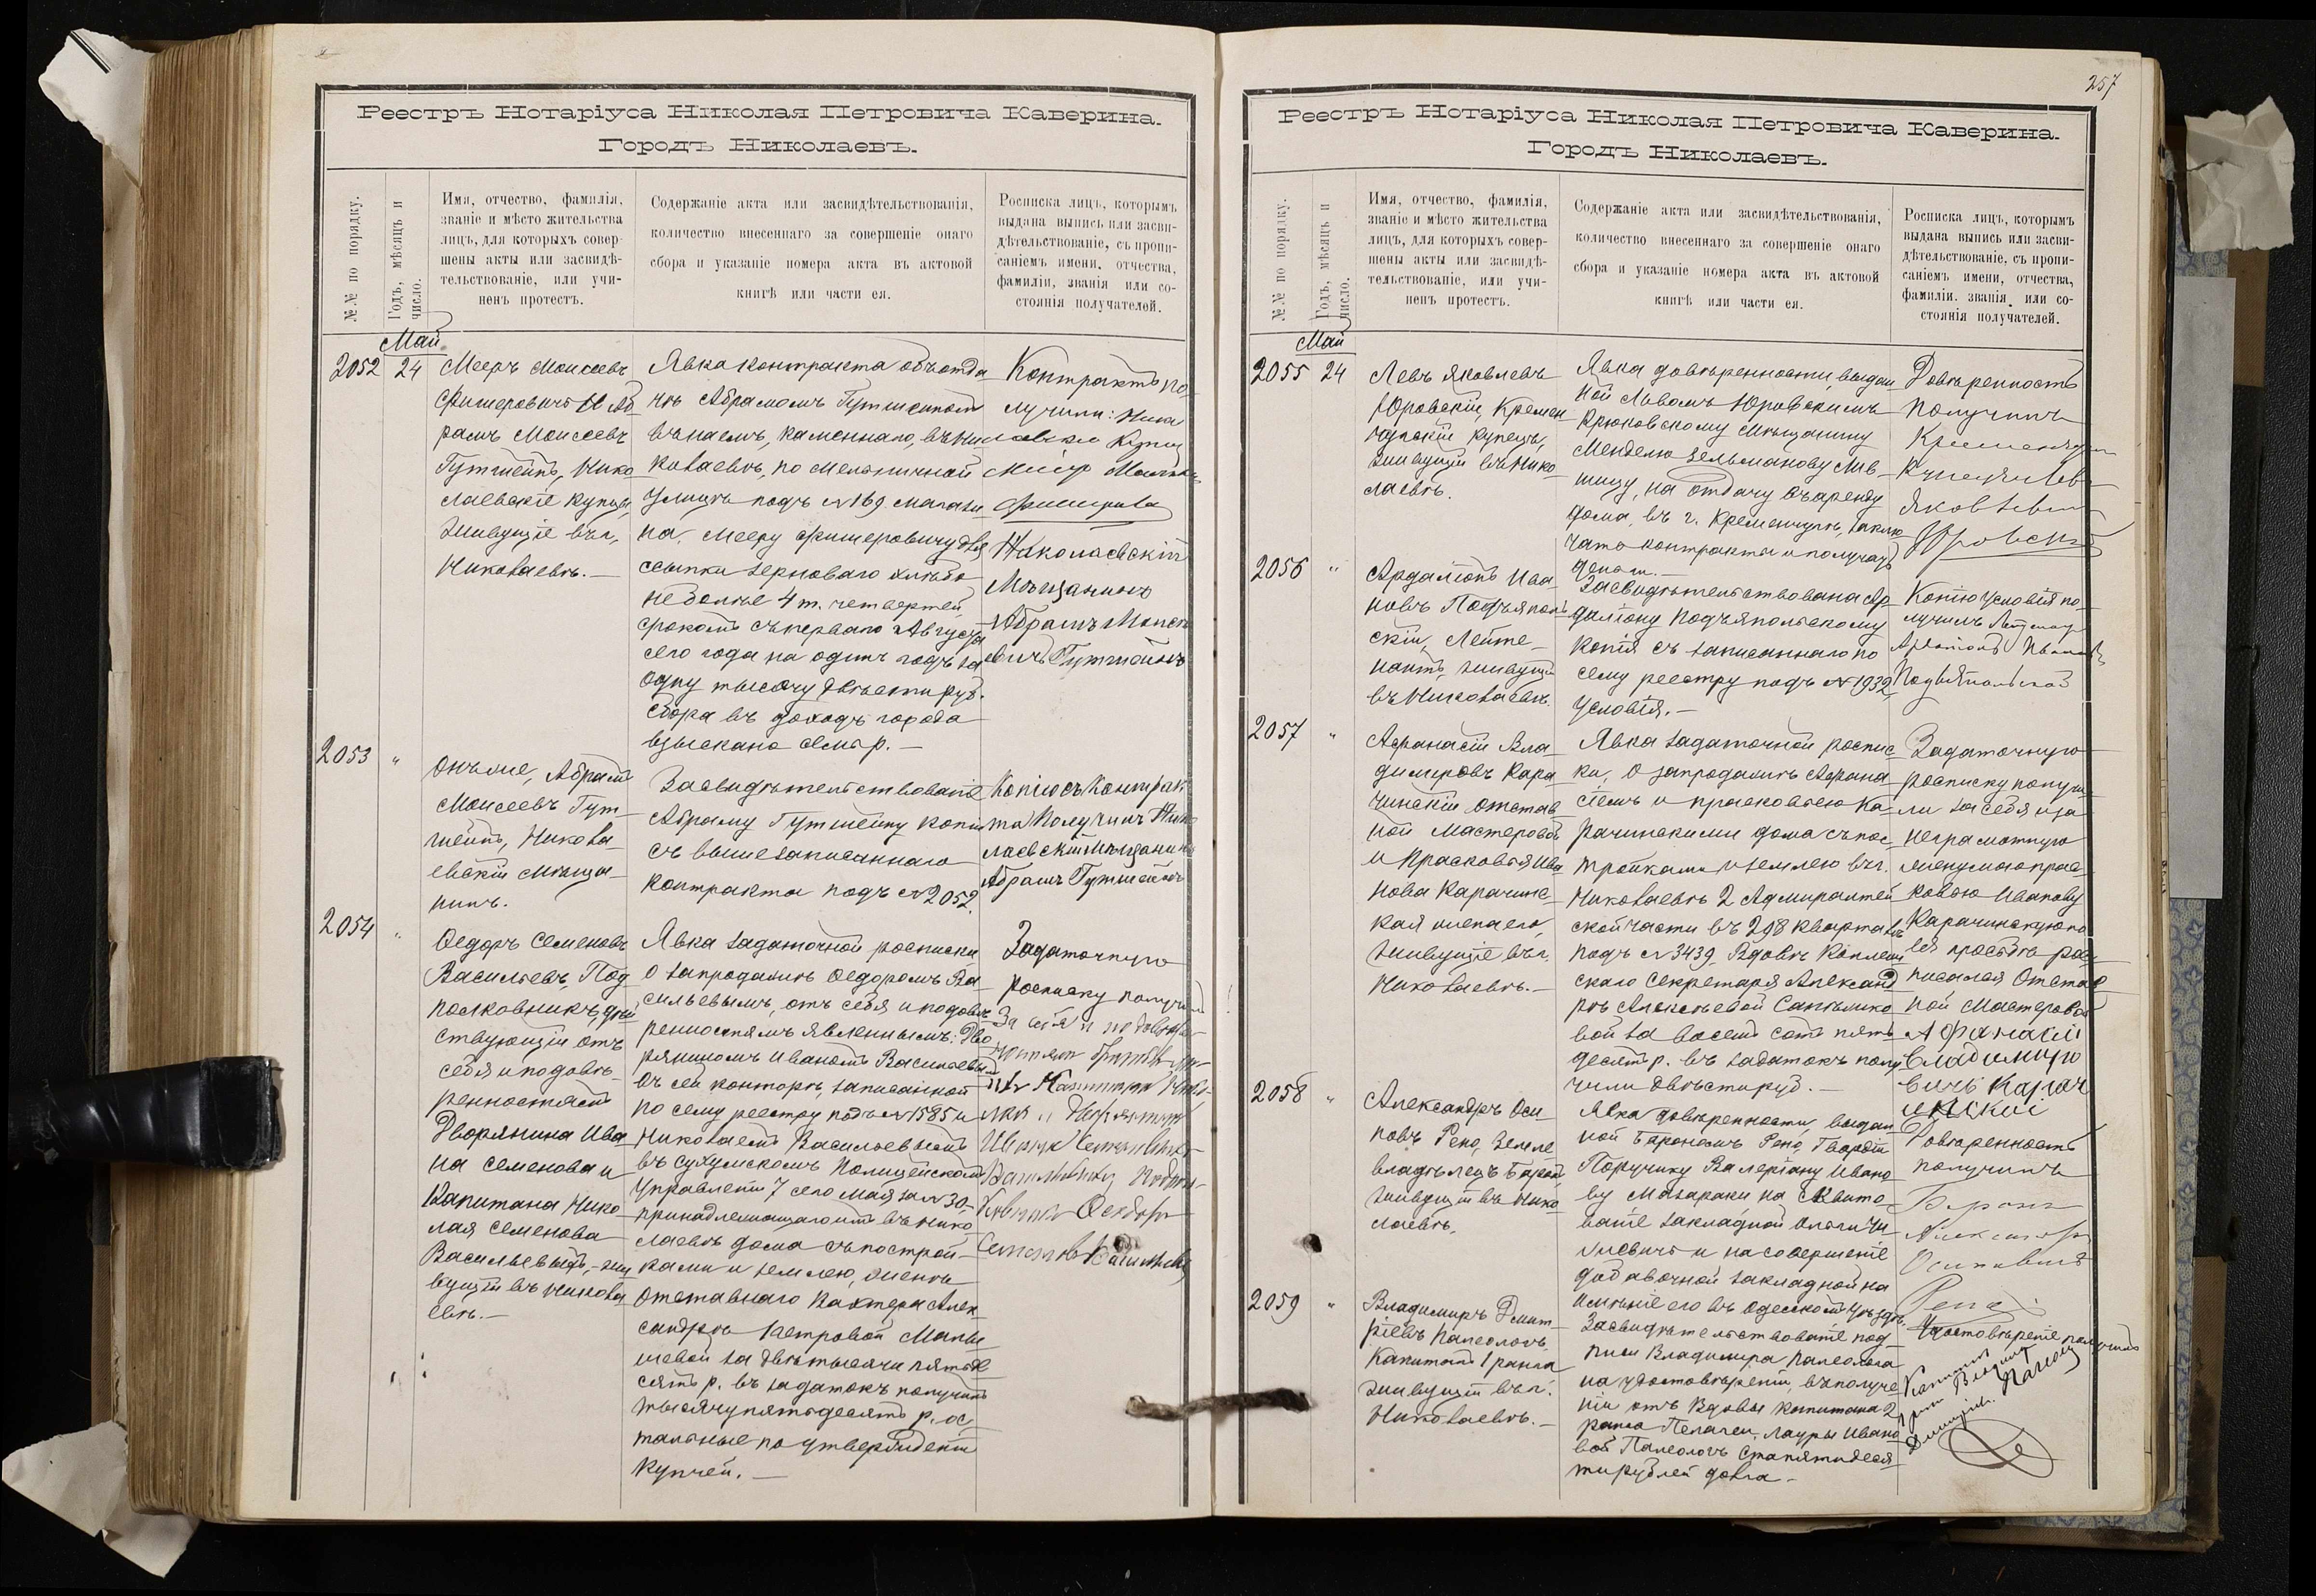 Реестръ Нотаріуса Николая Петровича Каверина.
Городъ Николаевъ.
№№ по порядку.
Годъ, мѣсяцъ и число.
Имя, отчество, фамилія,
званіе и мѣсто жительства
лицъ, для которыхъ совер-
шены акты или засвидѣ-
тельствованіе, или учи-
ненъ протестъ.
Содержаніе акта или засвидѣтельствованія,
количество внесеннаго за совершеніе онаго
сбора и указаніе номера акта въ актовой
книгѣ или части ея.
Росписка лицъ, которымъ
выдана выпись или засви-
дѣтельствованіе, съ пропи-
саніемъ имени, отчества,
фамиліи, званія или со-
стоянія получателей.
Май
2052 24
Мееръ Моисеевъ
Фишеровичъ и Аб
рамъ Моисеевъ
Гутшейнъ, Нико
лаевскіе купцы,
живущіе въ г.
Николаевѣ.—
Явка контракта объ отда
чѣ Абрамомъ Гутшейномъ
въ наемъ, каменнаго, въ Ни
колаевѣ, по Мельничной
улицѣ подъ №169 магази
на, Мееру Фишеровичу для
ссыпки зерноваго хлѣба
не болѣе 4 т. четвертей
срокомъ съ перваго Августа
сего года на одинъ годъ за
одну тысячу двѣсти руб.
Сбора въ доходъ города
взыскано семь р.—
Контрактъ по
лучили: Нико
Николаевскій
Мѣщанинъ
Абрамъ Моисе
евичъ Гутшейнъ
2053 "
Онъ же, Абрамъ
Моисеевъ Гут
шейнъ, Никола
евскій мѣща
нинъ.
Засвидѣтельствованіе
Абраму Гутшейну копіи
съ вышезаписаннаго
контракта подъ №2052.
Копію съ контрак
та получилъ Нико
лаевскій мѣщанинъ
Абрамъ Гутшейнъ
2054 "
Ѳедоръ Семеновъ
Васильевъ, Под
полковникъ, дѣй
ствующій отъ
себя и по довѣ
ренностямъ
Дворянина Ива
на Семенова и
Капитана Нико
лая Семенова
Васильевыхъ,— жи
вущій въ Никола
евѣ.—
Явка задаточной росписки
о запродажѣ Ѳедоромъ Ва
сильевымъ, отъ себя и по довѣ
ренностямъ явленнымъ: Дво
ряниномъ Иваномъ Васильевымъ
въ сей конторѣ, записанной
по сему реестру подъ №1585 и
Николаемъ Васильевымъ
въ Сухумскомъ Полицейскомъ
Управленіи 7 сего Мая за №30,
принадлежащаго имъ въ Нико
лаевѣ дома съ построй
ками и землею, женѣ
отставнаго Вахтера Алек
сандрѣ Петровой
за двѣ тысячи пятьде
сятъ р. въ задатокъ получилъ
тысячу пятьдесятъ р. ос
тальные по утвержденіи
купчей.—
Задаточную
росписку получилъ
За себя и по довѣрен
Дворянина
Ивана Семеновича
Васильевыхъ Подпол
ковникъ Ѳедоръ
Семеновъ Васильевъ
257
Реестръ Нотаріуса Николая Петровича Каверина.
Городъ Николаевъ.
№№ по порядку.
Годъ, мѣсяцъ и число.
Имя, отчество, фамилія,
званіе и мѣсто жительства
лицъ, для которыхъ совер-
шены акты или засвидѣ-
тельствованіе, или учи-
ненъ протестъ.
Содержаніе акта или засвидѣтельствованія,
количество внесеннаго за совершеніе онаго
сбора и указаніе номера акта въ актовой
книгѣ или части ея.
Росписка лицъ, которымъ
выдана выпись или засви-
дѣтельствованіе, съ пропи-
саніемъ имени, отчества,
фамиліи. званія или со-
стоянія получателей.
Май
2055 24
Левъ Яковлевъ
Юровскій, Кремен
чугскій купецъ,
живущій въ Нико
лаевѣ.
Явка довѣренности, выдан
ной Львомъ Юровскимъ
Крюковскому мѣщанину
Менделю Зельманову Лив
шицу, на отдачу въ аренду
дома, въ г. Кременчугѣ, заклю
чать контракты и получать
деньги.—
Довѣренность
получилъ
Кременчугскій
Купецъ Левъ
Яковлевъ
Юровскій
2056 "
Ардаліонъ Ива
новъ Подъяполь
скій, Лейте
нантъ, живущій
въ Николаевѣ.
Засвидѣтельствована Ар
даліону Подъяпольскому
копія съ записаннаго по
сему реестру подъ №1932
условія.—
Копію условія по
лучилъ Лейтенантъ
Ардаліонъ Ивановъ
Подъяпольской
2057 "
Афанасій Вла
димировъ Кара
чинскій отстав
ной Мастеровой
и Прасковья Ива
нова Карачинс
кая жена его,
живущіе въ г.
Николаевѣ.—
Явка задаточной роспис
ки, о запродажѣ Афана
сіемъ и Прасковьею Ка
рачинскими дома съ пос
тройками и землею въ г.
Николаевѣ 2 Адмиралтей
ской части въ 298 кварталѣ
подъ №3439. Вдовѣ Коллеж
скаго Секретаря Александ
рѣ Алексѣевой
за восемь сотъ пять
десятъ р. въ задатокъ полу
чили двѣсти руб.—
Задаточную
росписку получи
ли за себя и за
неграмотную
жену мою Прас
ковью Иванову
Карачинскую по
ея просьбѣ рос
писался Отстав
ной Мастеровой
Афанасій
Владимиро
вичъ Карач
инскій
2058 "
Александръ Оси
повъ Рено, Земле
владѣлецъ Баронъ
живущій въ Нико
лаевѣ.
Явка довѣренности, выдан
ной Барономъ Рено, Гвардіи
Поручику Валеріану Ивано
ву Мазараки на
ваніе закладной
и на совершеніе
добавочной закладной на
имѣніе его въ Одесскомъ уѣздѣ.
Довѣренность
получилъ
Баронъ
Александръ
Осиповичъ
Рено
2059 "
Владимиръ Дмит
ріевъ Палеологъ,
Капитанъ 1 ранга
живущій въ г.
Николаевѣ.—
Засвидѣтельствованіе под
писи Владимира Палеолога
на удостовѣреніи, въ получе
ніи отъ Вдовы Капитана 2
ранга Пелагеи, Лауры Ивано
вой Палеологъ ста пятидеся
ти рублей долга.—
Удостовѣреніе получилъ
Капитанъ
1 ранга Владимиръ
Дмитріев. Палеологъ